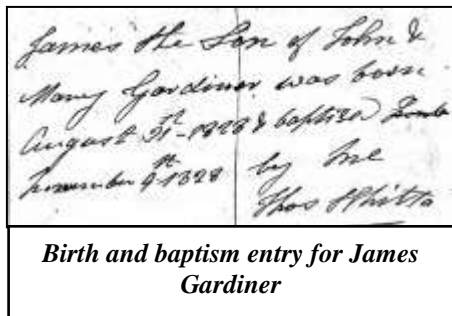 James the Son of John &
Mary Gardiner was born
August 31st 1828 & baptized
November 9th 1828 by me
Thos Whitta
Birth and baptism entry for James
Gardiner